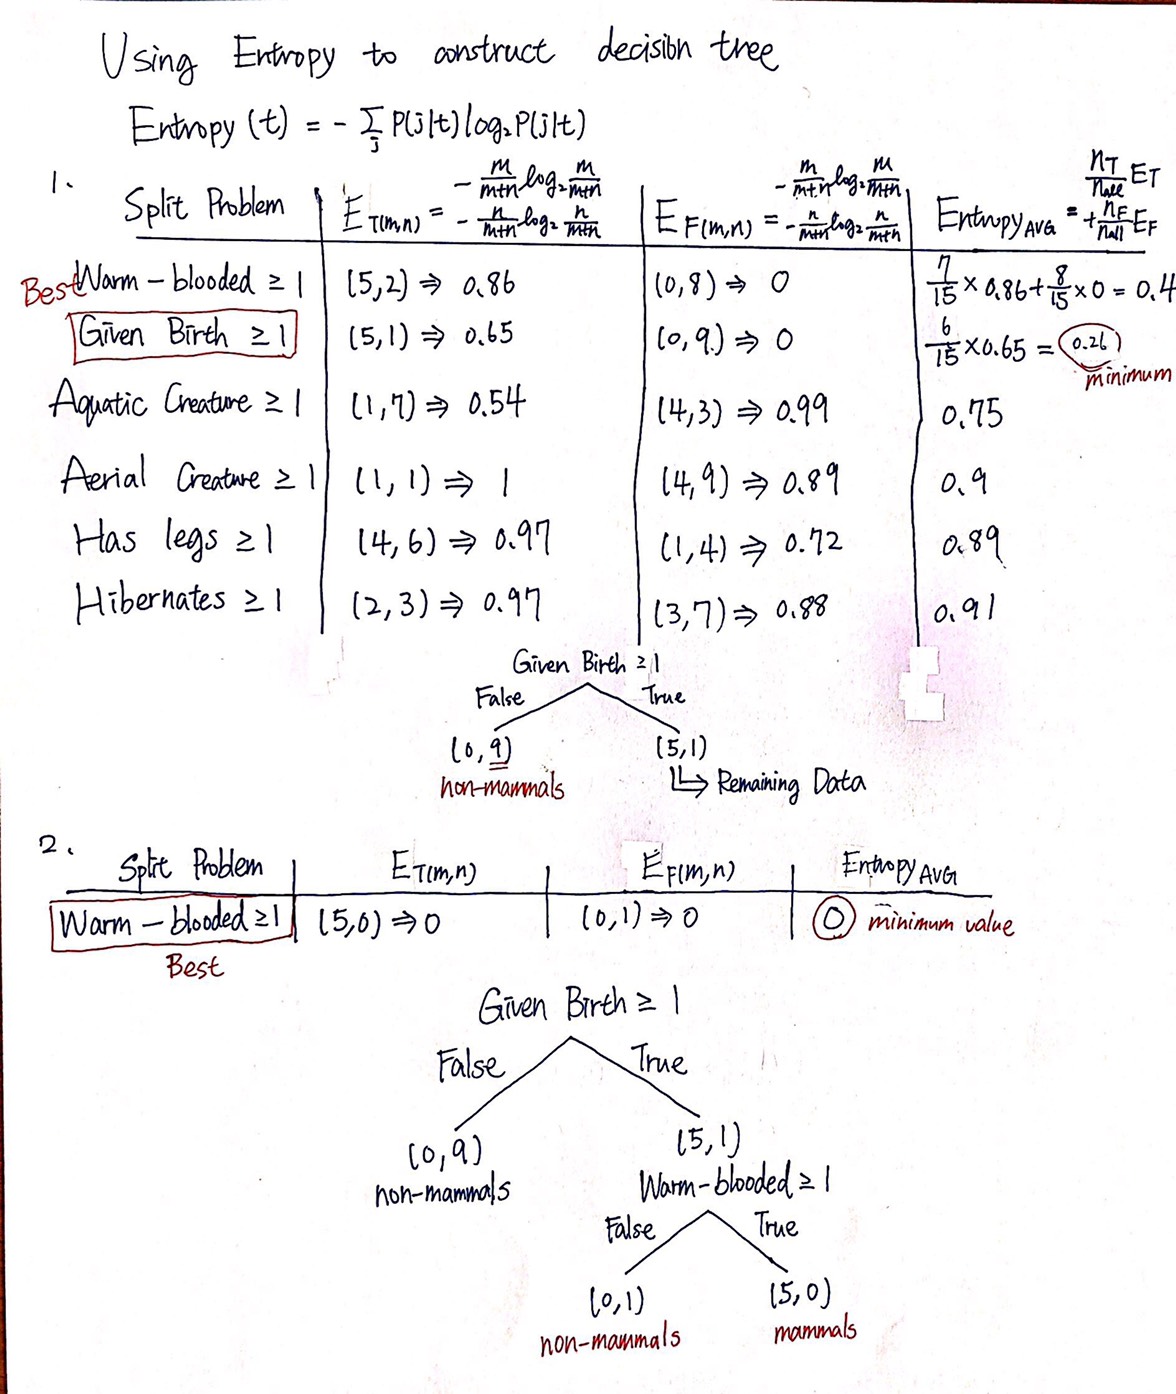 Using Entropy to construct decision tree
Entropy (t) = - Σ_j P(j|t) log₂ P(j|t)
1.
Split Problem | E_T(m,n) = - m/(m+n) log₂ m/(m+n) - n/(m+n) log₂ n/(m+n) | E_F(m,n) = - m/(m+n) log₂ m/(m+n) - n/(m+n) log₂ n/(m+n) | Entropy_AVG = n_T/n_all E_T + n_F/n_all E_F
Warm-blooded ≥ 1 | (5,2) ⇒ 0.86 | (0,8) ⇒ 0 | 7/15 × 0.86 + 8/15 × 0 = 0.4
Best
Given Birth ≥ 1 | (5,1) ⇒ 0.65 | (0,9) ⇒ 0 | 6/15 × 0.65 = 0.26
minimum
Aquatic Creature ≥ 1 | (1,7) ⇒ 0.54 | (4,3) ⇒ 0.99 | 0.75
Aerial Creature ≥ 1 | (1,1) ⇒ 1 | (4,9) ⇒ 0.89 | 0.9
Has legs ≥ 1 | (4,6) ⇒ 0.97 | (1,4) ⇒ 0.72 | 0.89
Hibernates ≥ 1 | (2,3) ⇒ 0.97 | (3,7) ⇒ 0.88 | 0.91
Given Birth ≥ 1
False True
(0,9) (5,1)
non-mammals ↳ Remaining Data
2.
Split Problem | E_T(m,n) | E_F(m,n) | Entropy_AVG
Warm-blooded ≥ 1 | (5,0) ⇒ 0 | (0,1) ⇒ 0 | 0 minimum value
Best
Given Birth ≥ 1
False True
(0,9) (5,1)
non-mammals Warm-blooded ≥ 1
False True
(0,1) (5,0)
non-mammals mammals